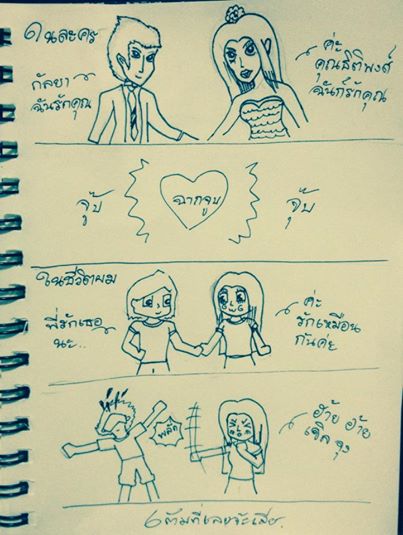 ในละคร
กัลยา
ฉันรักคุณ
ค่ะ
คุณธิติพงศ์
ฉันก็รักคุณ
จุ๊บ
ฉากจูบ
จุ๊บ
ในชีวิตผม
พี่รักเธอ
นะ..
ค่ะ
รักเหมือน
กันค่ะ
พลั๊ก
อ๊าย อ๊าย
เขิล จุง